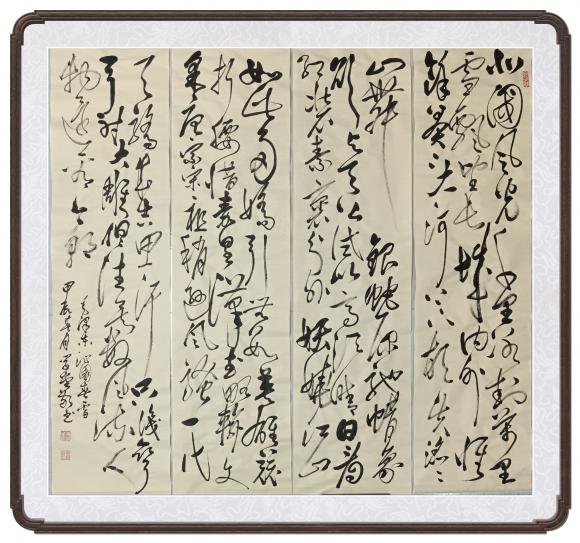 北國風光千里冰封萬里
雪飄望長城内外惟
餘莽莽大河上下頓失滔滔
山舞銀蛇原馳蠟象
欲與天公試比高須晴日看
紅裝素裹分外妖嬈江山
如此多嬌引無數英雄競
折腰惜秦皇漢武略輸文
采唐宗宋祖稍遜風騷一代
天驕成吉思汗只識彎
弓射大雕俱往矣數風流人
物還看今朝
毛澤東沁園春雪
甲辰春月書